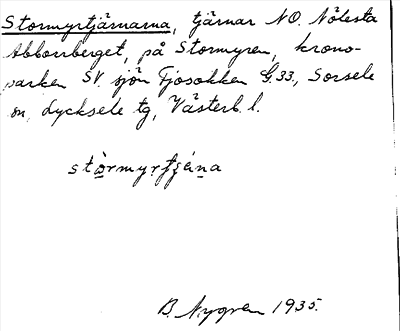 Stormyrtjärnarna, tjärnar NO. Nölesta
Abborrberget, på Stormyren, krono-
parken SV. sjön Fjosokken G.33, Sorsele
sn, Lycksele tg, Västerb. l.
stòrmyrtjéna
B. Nygren 1935.